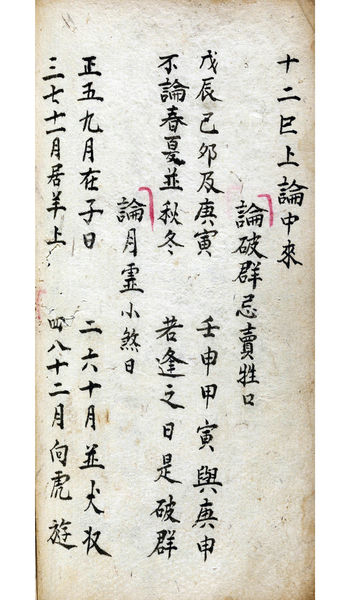 十二巳上論中來
論破群忌賣牲口
戊辰己夘及庚寅 壬申甲寅與庚申
不論春夏並秋冬 若逢之日是破群
論月霊小煞日
正五九月在子日 二六十月並犬収
三七十一月居羊上 四八十二月向虎遊